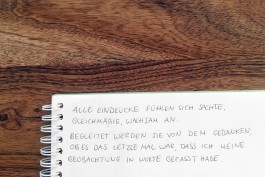 ALLE EINDRÜCKE FÜHLEN SICH SACHTE,
GLEICHMÄßIG, WACHSAM AN.
BEGLEITET WERDEN SIE VON DEM GEDANKEN,
OB ES DAS LETZTE MAL WAR, DASS ICH MEINE
BEOBACHTUNG IN WORTE GEFASST HABE.